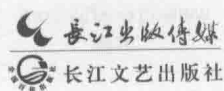 長江出版傳媒
长江文艺出版社